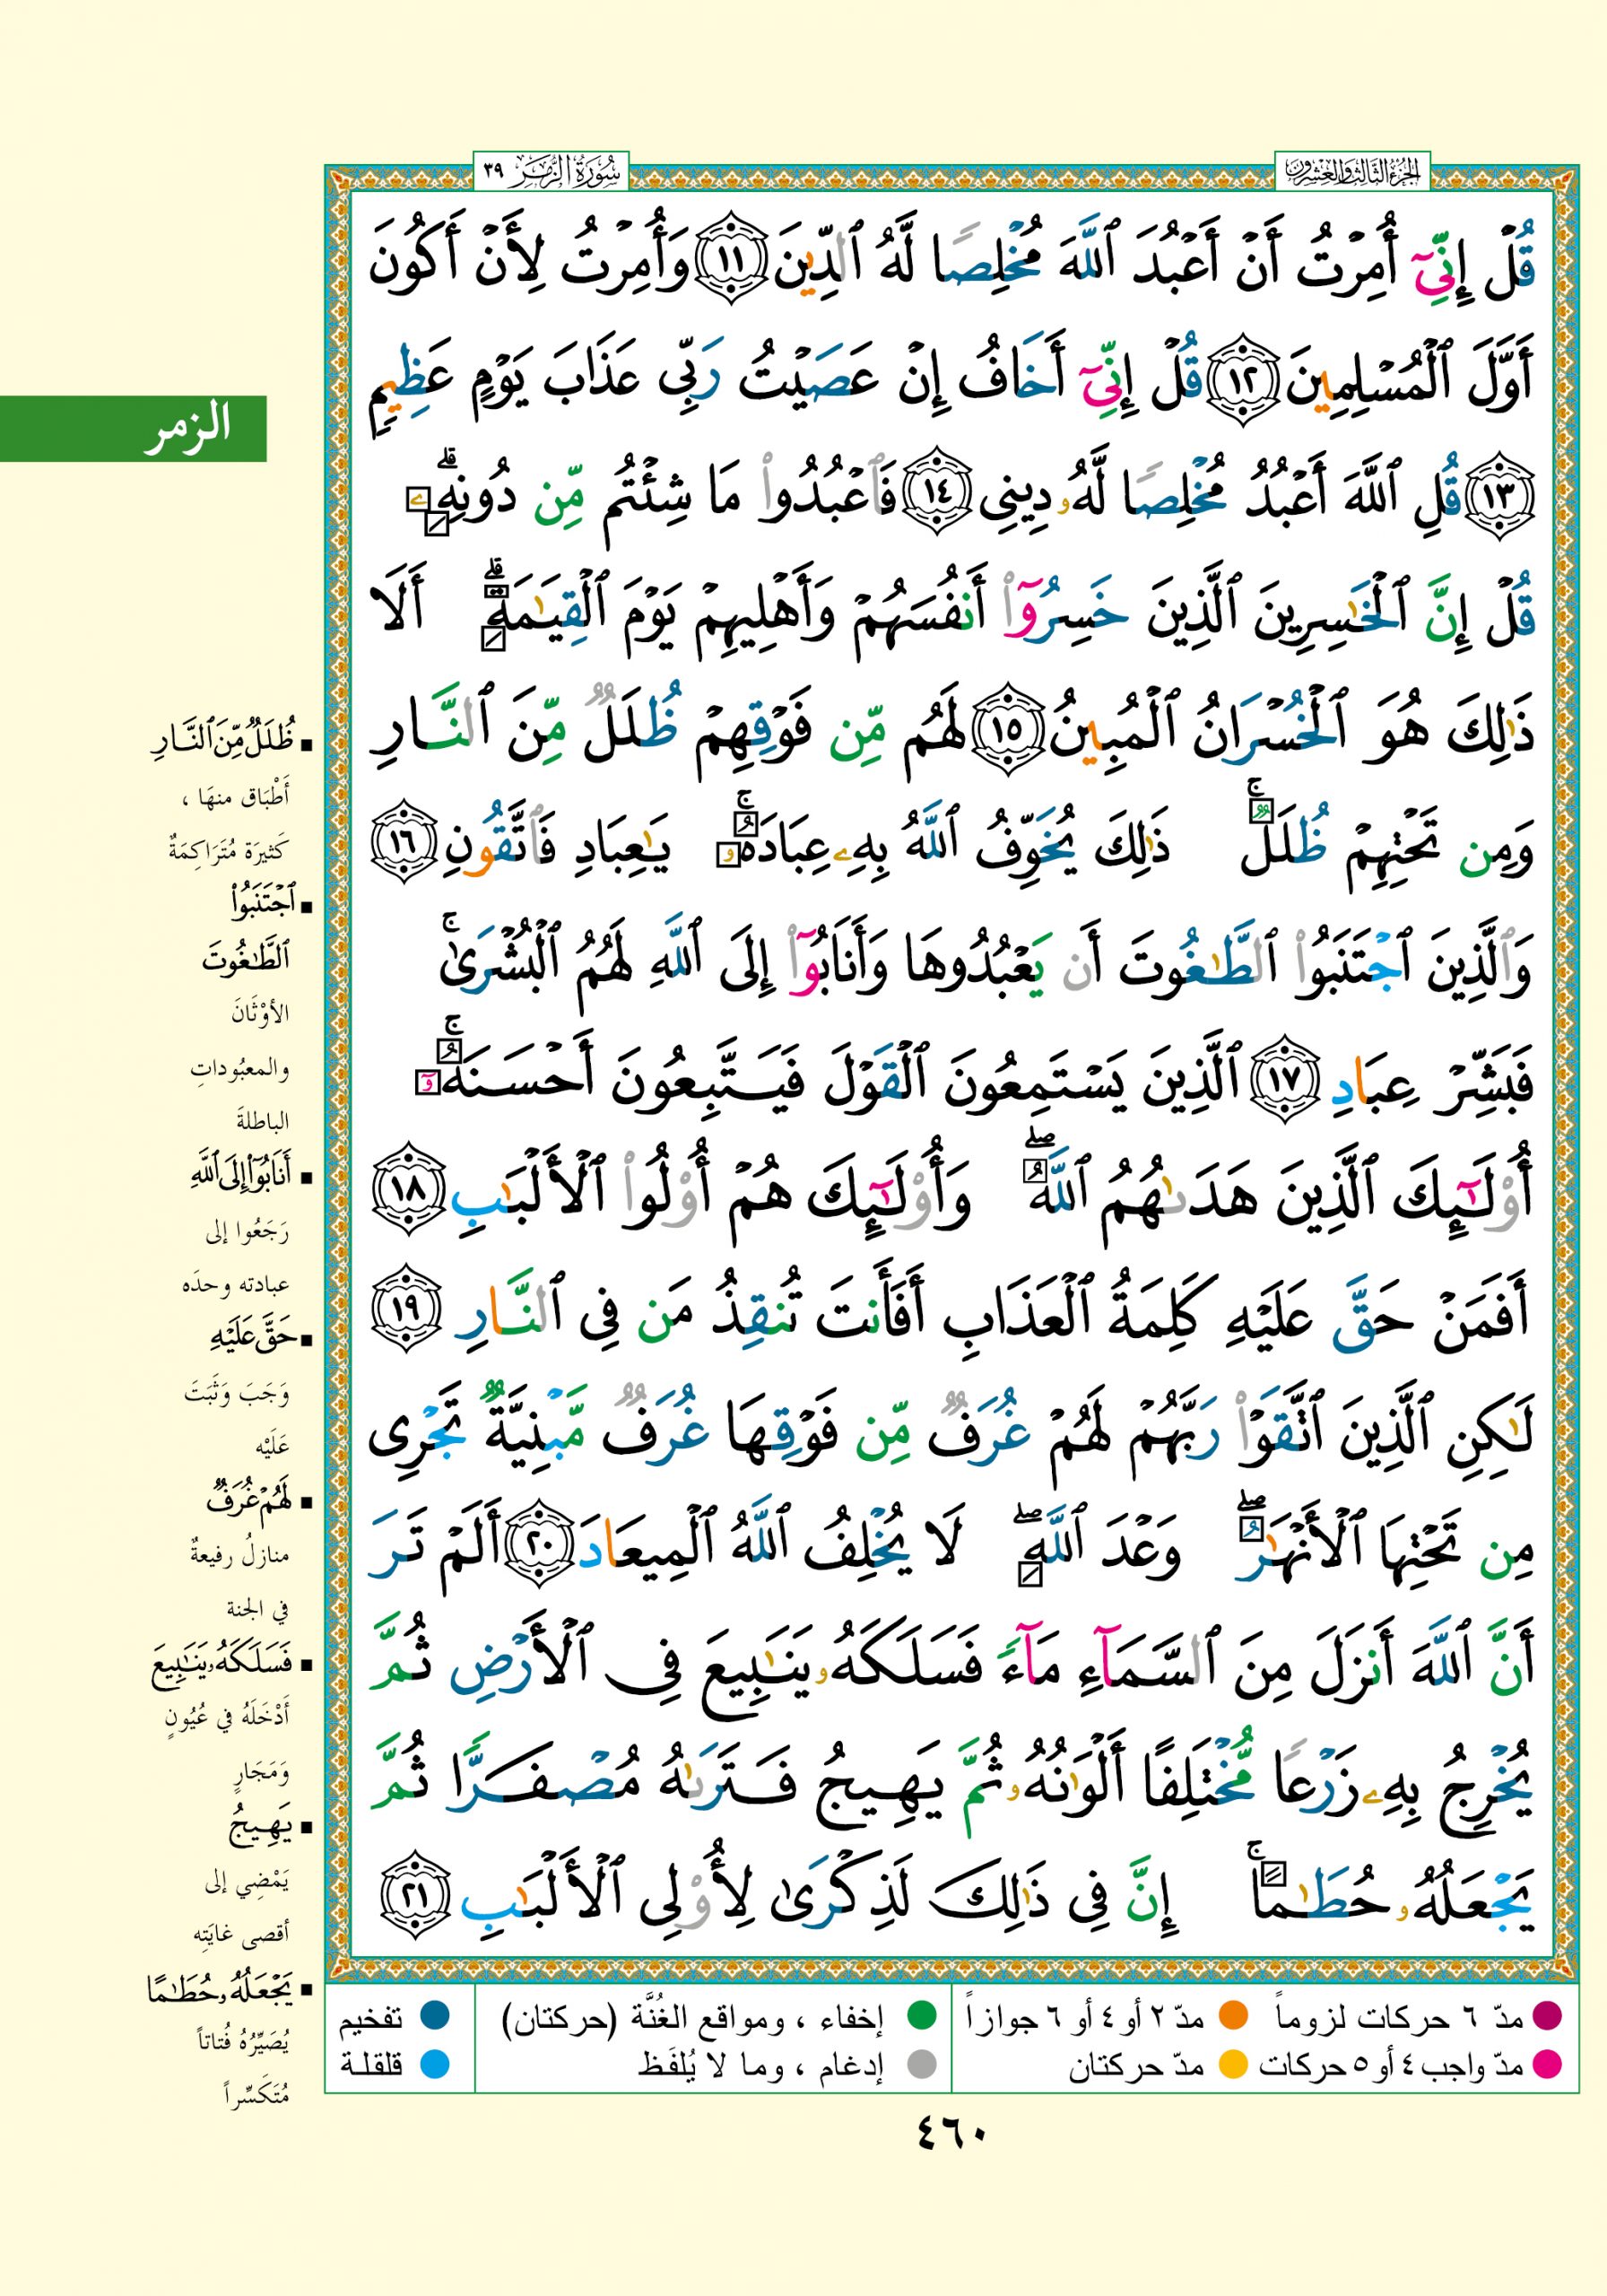 الجزء الثالث والعشرون
سورة الزمر ٣٩
قُلۡ إِنِّيٓ أُمِرۡتُ أَنۡ أَعۡبُدَ ٱللَّهَ مُخۡلِصٗا لَّهُ ٱلدِّينَ ١١ وَأُمِرۡتُ لِأَنۡ أَكُونَ
أَوَّلَ ٱلۡمُسۡلِمِينَ ١٢ قُلۡ إِنِّيٓ أَخَافُ إِنۡ عَصَيۡتُ رَبِّي عَذَابَ يَوۡمٍ عَظِيمٖ
١٣ قُلِ ٱللَّهَ أَعۡبُدُ مُخۡلِصٗا لَّهُۥ دِينِي ١٤ فَٱعۡبُدُواْ مَا شِئۡتُم مِّن دُونِهِۦۗ
قُلۡ إِنَّ ٱلۡخَٰسِرِينَ ٱلَّذِينَ خَسِرُوٓاْ أَنفُسَهُمۡ وَأَهۡلِيهِمۡ يَوۡمَ ٱلۡقِيَٰمَةِۗ أَلَا
ذَٰلِكَ هُوَ ٱلۡخُسۡرَانُ ٱلۡمُبِينُ ١٥ لَهُم مِّن فَوۡقِهِمۡ ظُلَلٞ مِّنَ ٱلنَّارِ
وَمِن تَحۡتِهِمۡ ظُلَلٞۚ ذَٰلِكَ يُخَوِّفُ ٱللَّهُ بِهِۦ عِبَادَهُۥۚ يَٰعِبَادِ فَٱتَّقُونِ ١٦
وَٱلَّذِينَ ٱجۡتَنَبُواْ ٱلطَّٰغُوتَ أَن يَعۡبُدُوهَا وَأَنَابُوٓاْ إِلَى ٱللَّهِ لَهُمُ ٱلۡبُشۡرَىٰۚ
فَبَشِّرۡ عِبَادِ ١٧ ٱلَّذِينَ يَسۡتَمِعُونَ ٱلۡقَوۡلَ فَيَتَّبِعُونَ أَحۡسَنَهُۥٓۚ
أُوْلَٰٓئِكَ ٱلَّذِينَ هَدَىٰهُمُ ٱللَّهُۖ وَأُوْلَٰٓئِكَ هُمۡ أُوْلُواْ ٱلۡأَلۡبَٰبِ ١٨
أَفَمَنۡ حَقَّ عَلَيۡهِ كَلِمَةُ ٱلۡعَذَابِ أَفَأَنتَ تُنقِذُ مَن فِي ٱلنَّارِ ١٩
لَٰكِنِ ٱلَّذِينَ ٱتَّقَوۡاْ رَبَّهُمۡ لَهُمۡ غُرَفٞ مِّن فَوۡقِهَا غُرَفٞ مَّبۡنِيَّةٞ تَجۡرِي
مِن تَحۡتِهَا ٱلۡأَنۡهَٰرُۖ وَعۡدَ ٱللَّهِۖ لَا يُخۡلِفُ ٱللَّهُ ٱلۡمِيعَادَ ٢٠ أَلَمۡ تَرَ
أَنَّ ٱللَّهَ أَنزَلَ مِنَ ٱلسَّمَآءِ مَآءٗ فَسَلَكَهُۥ يَنَٰبِيعَ فِي ٱلۡأَرۡضِ ثُمَّ
يُخۡرِجُ بِهِۦ زَرۡعٗا مُّخۡتَلِفًا أَلۡوَٰنُهُۥ ثُمَّ يَهِيجُ فَتَرَىٰهُ مُصۡفَرّٗا ثُمَّ
يَجۡعَلُهُۥ حُطَٰمًاۚ إِنَّ فِي ذَٰلِكَ لَذِكۡرَىٰ لِأُوْلِي ٱلۡأَلۡبَٰبِ ٢١
الزمر
ظُلَلٞ مِّنَ ٱلنَّارِ
أَطْبَاق منهَا ،
كَثيرَة مُتَرَاكِمَةٌ
ٱجۡتَنَبُواْ
ٱلطَّٰغُوتَ
الأوْثَانَ
والمعبُودَاتِ
الباطلةَ
أَنَابُوٓاْ إِلَى ٱللَّهِ
رَجَعُوا إلى
عبادته وحدَه
حَقَّ عَلَيۡهِ
وَجَبَ وَثَبَتَ
عَلَيْه
لَهُمۡ غُرَفٞ
منازلُ رفيعةٌ
في الجنة
فَسَلَكَهُۥ يَنَٰبِيعَ
أَدْخَلَهُ في عُيُونٍ
وَمَجَارٍ
يَهِيجُ
يَمْضِي إلى
أقصى غايَتِه
يَجۡعَلُهُۥ حُطَٰمًا
يُصَيِّرُهُ فُتاتاً
مُتَكَسِّراً
مدّ ٦ حركات لزوماً
مدّ ٢ أو ٤ أو ٦ جوازاً
إخفاء ، ومواقع الغُنَّة (حركتان)
تفخيم
مدّ واجب ٤ أو ٥ حركات
مدّ حركتان
إدغام ، وما لا يُلفَظ
قلقلة
٤٦٠